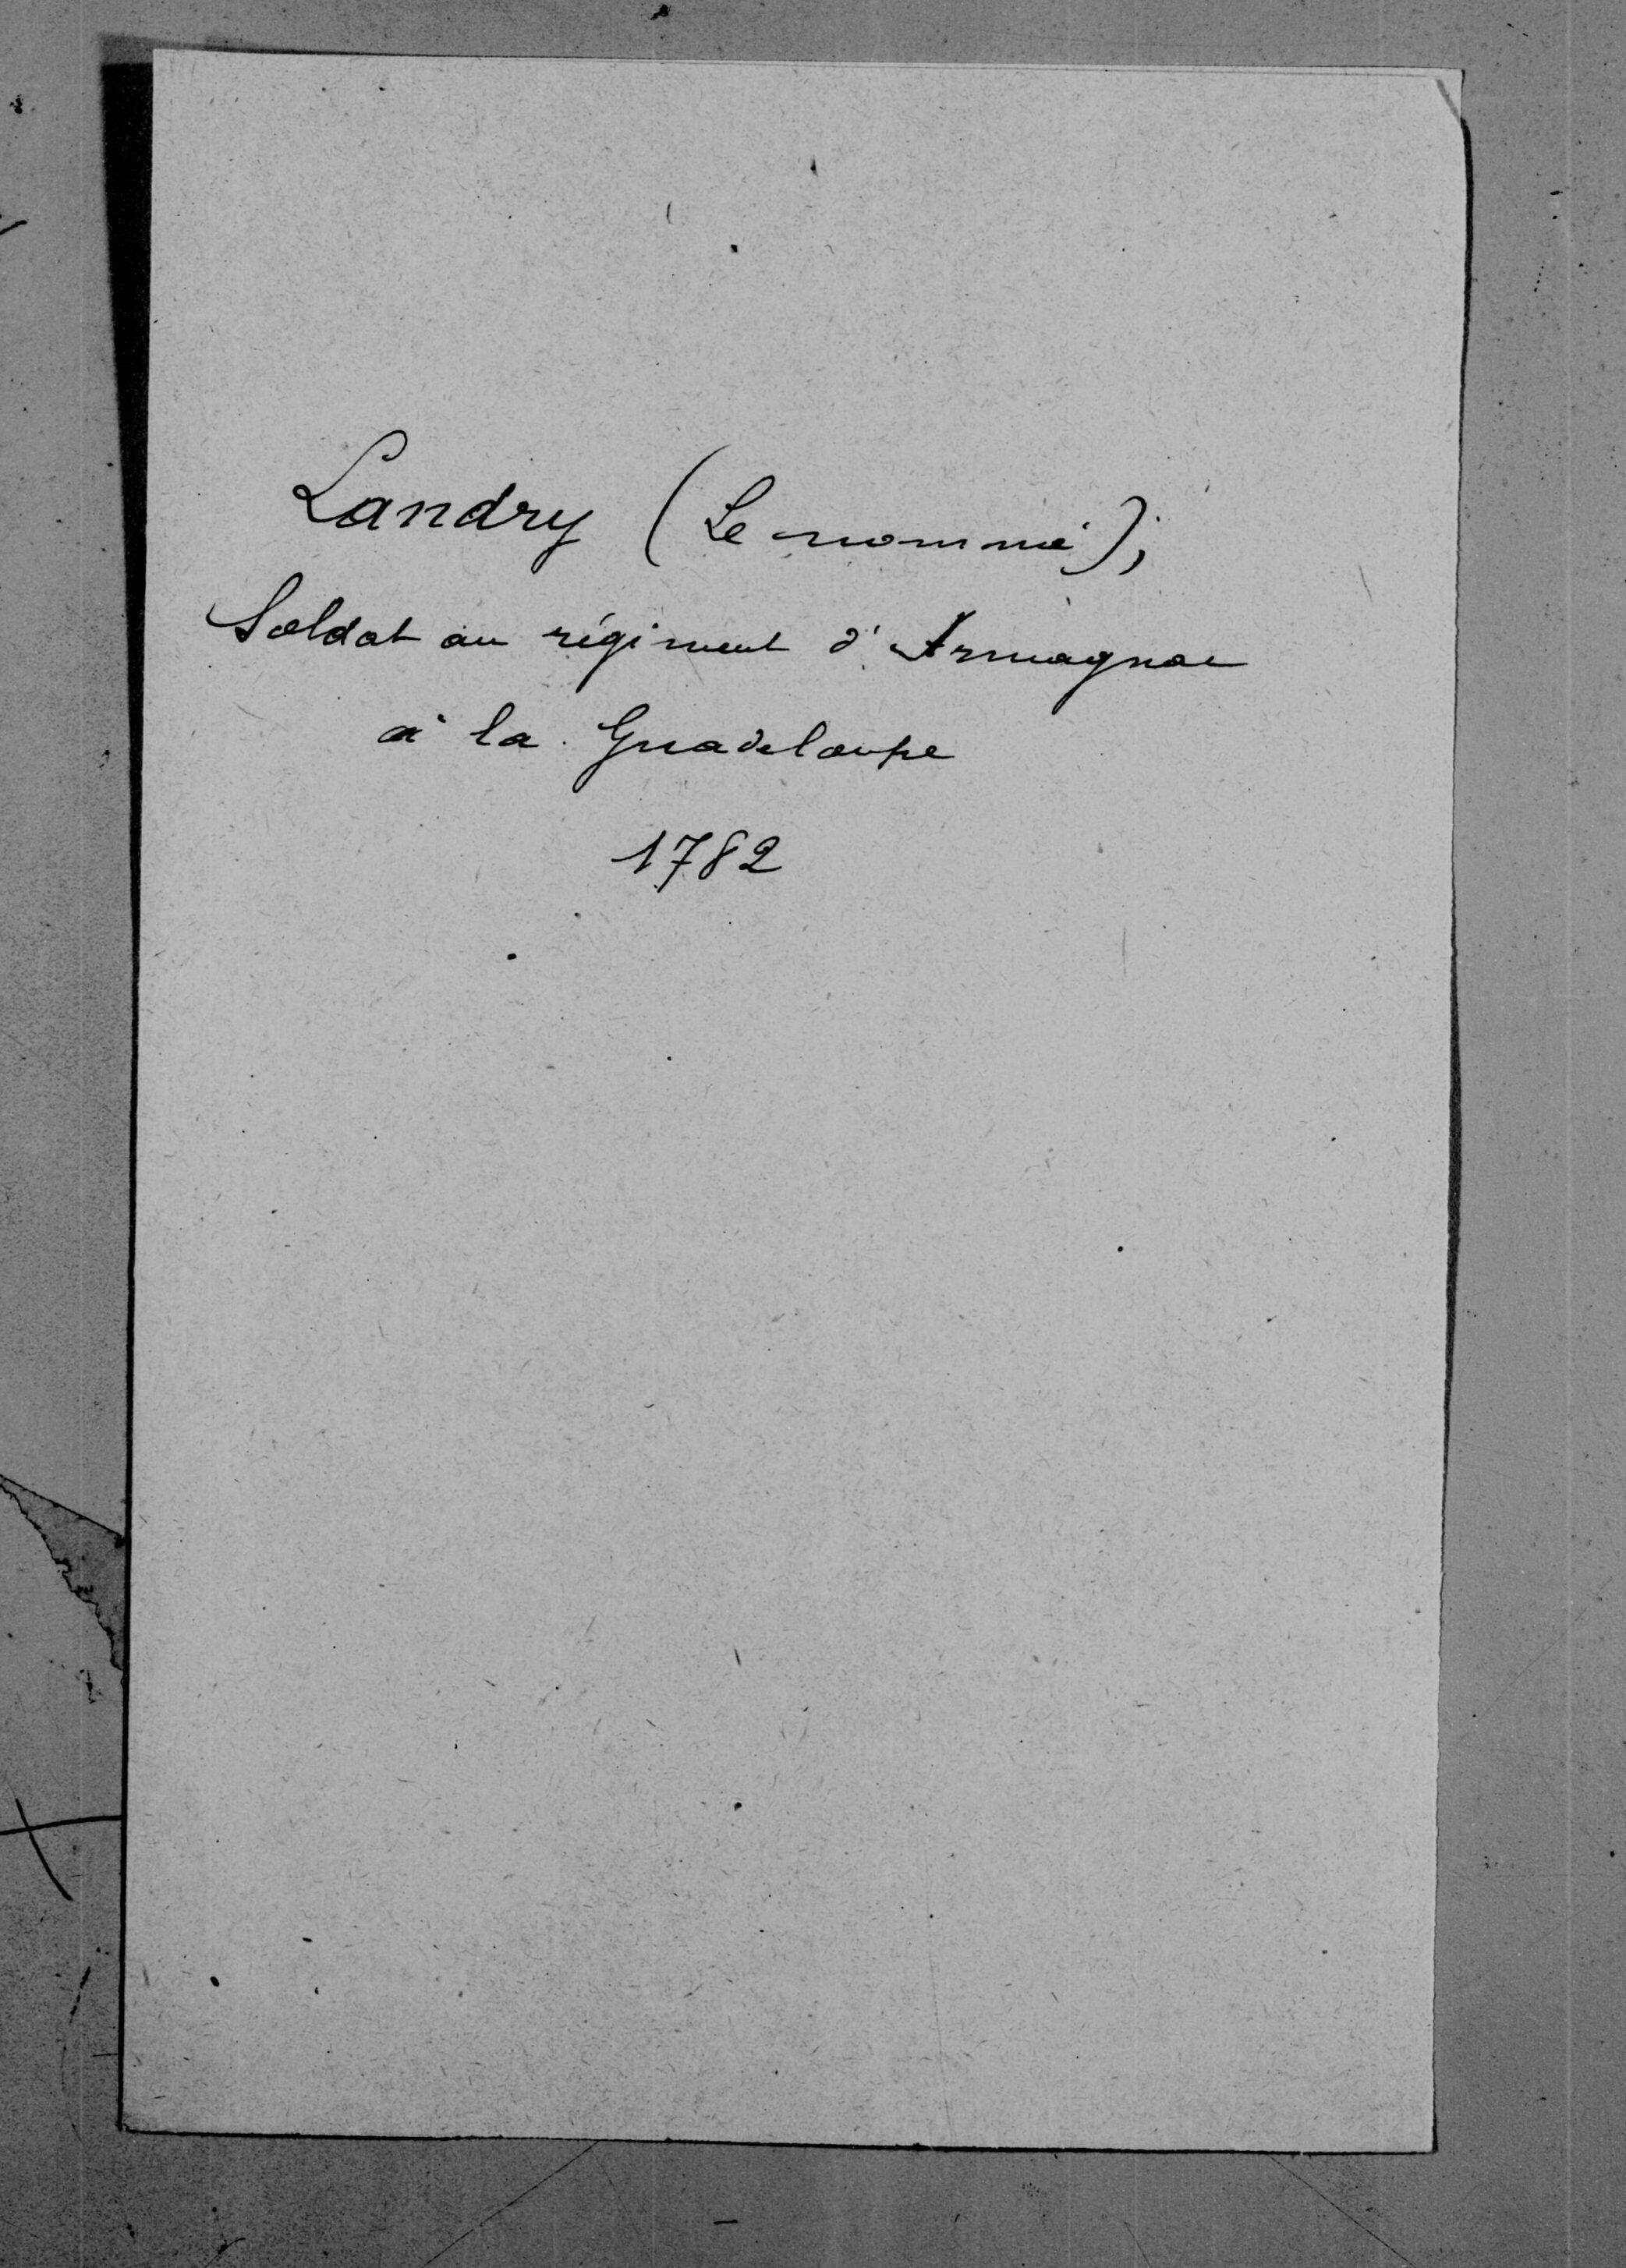 Landry (Le nommé),
Soldat au régiment d'Armagnac
à la Guadeloupe
1782